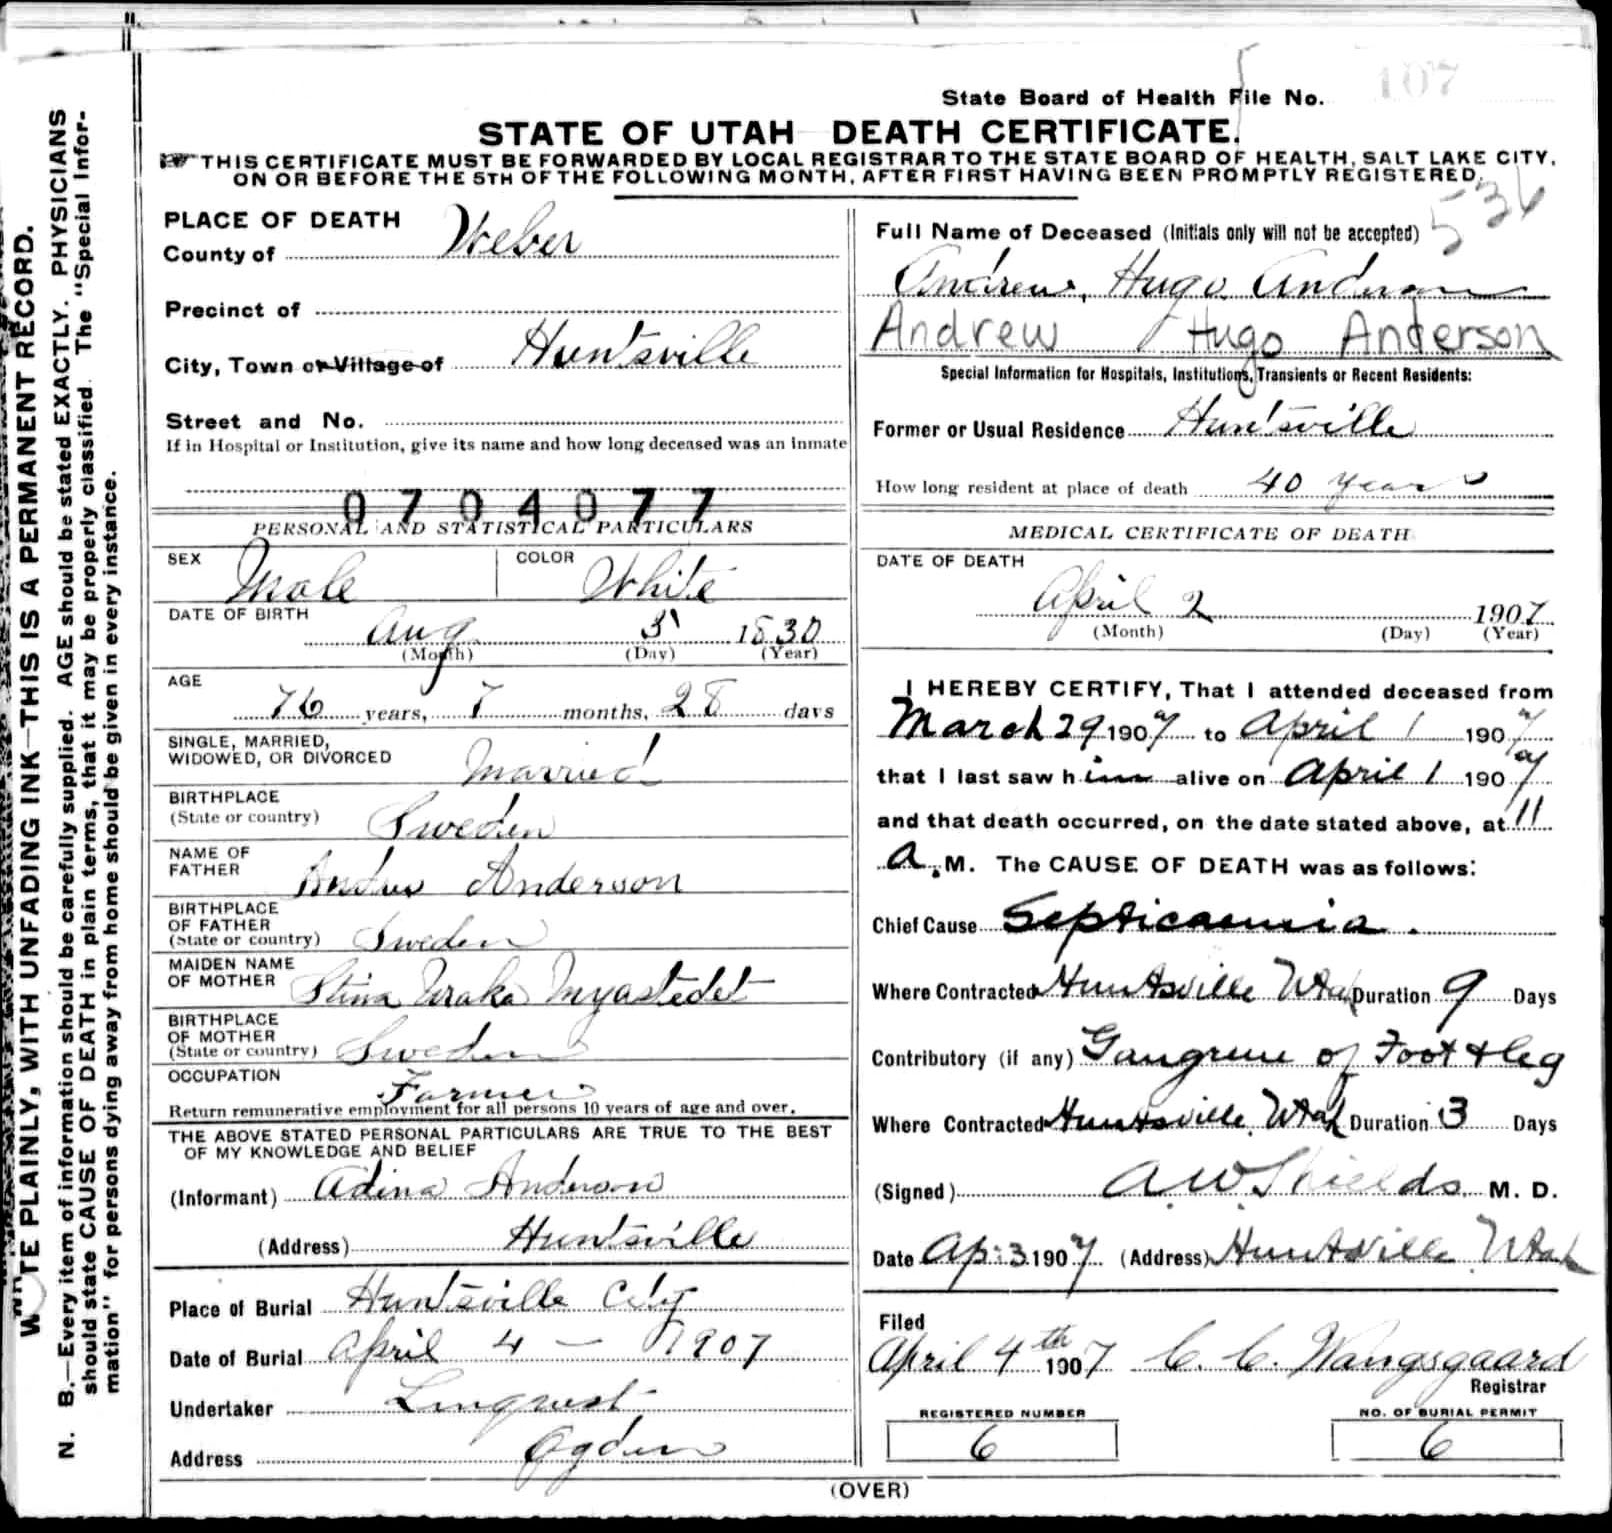 107
State Board of Health File No.
STATE OF UTAH DEATH CERTIFICATE.
THIS CERTIFICATE MUST BE FORWARDED BY LOCAL REGISTRAR TO THE STATE BOARD OF HEALTH, SALT LAKE CITY,
ON OR BEFORE THE 5TH OF THE FOLLOWING MONTH, AFTER FIRST HAVING BEEN PROMPTLY REGISTERED.
WRITE PLAINLY, WITH UNFADING INK—THIS IS A PERMANENT RECORD.
N. B.—Every item of information should be carefully supplied. AGE should be stated EXACTLY. PHYSICIANS
should state CAUSE OF DEATH in plain terms, that it may be properly classified. The "Special Infor-
mation" for persons dying away from home should be given in every instance.
PLACE OF DEATH
County of Weber
Precinct of
City, Town or Village of Huntsville
Street and No.
If in Hospital or Institution, give its name and how long deceased was an inmate
0704077
PERSONAL AND STATISTICAL PARTICULARS
SEX Male COLOR White
DATE OF BIRTH
Aug 5 1830
(Month) (Day) (Year)
AGE
76 years, 7 months, 28 days
SINGLE, MARRIED,
WIDOWED, OR DIVORCED Married
BIRTHPLACE
(State or country) Sweden
NAME OF
FATHER Anderson
BIRTHPLACE
OF FATHER
(State or country) Sweden
MAIDEN NAME
OF MOTHER Stina
BIRTHPLACE
OF MOTHER
(State or country) Sweden
OCCUPATION Farmer
Return remunerative employment for all persons 10 years of age and over.
THE ABOVE STATED PERSONAL PARTICULARS ARE TRUE TO THE BEST
OF MY KNOWLEDGE AND BELIEF
(Informant) Adina Anderson
(Address) Huntsville
Place of Burial Huntsville City
Date of Burial April 4 — 1907
Undertaker Linquest
Address Ogden
536
Full Name of Deceased (Initials only will not be accepted)
Andrew Hugo Anderson
Andrew Hugo Anderson
Special Information for Hospitals, Institutions, Transients or Recent Residents:
Former or Usual Residence Huntsville
How long resident at place of death 40 years
MEDICAL CERTIFICATE OF DEATH
DATE OF DEATH
April 2 1907
(Month) (Day) (Year)
I HEREBY CERTIFY, That I attended deceased from
March 29 1907 to April 1 1907
that I last saw him alive on April 1 1907
and that death occurred, on the date stated above, at 11
a.M. The CAUSE OF DEATH was as follows:
Chief Cause Septicaemia.
Where Contracted Huntsville Utah Duration 9 Days
Contributory (if any) Gangrene of Foot & leg
Where Contracted Huntsville Utah Duration 3 Days
(Signed) A. W. Shields M. D.
Date Ap. 3 1907 (Address) Huntsville Utah
Filed
April 4th 1907 C. C. Wangsgaard
Registrar
REGISTERED NUMBER
6
NO. OF BURIAL PERMIT
6
(OVER)